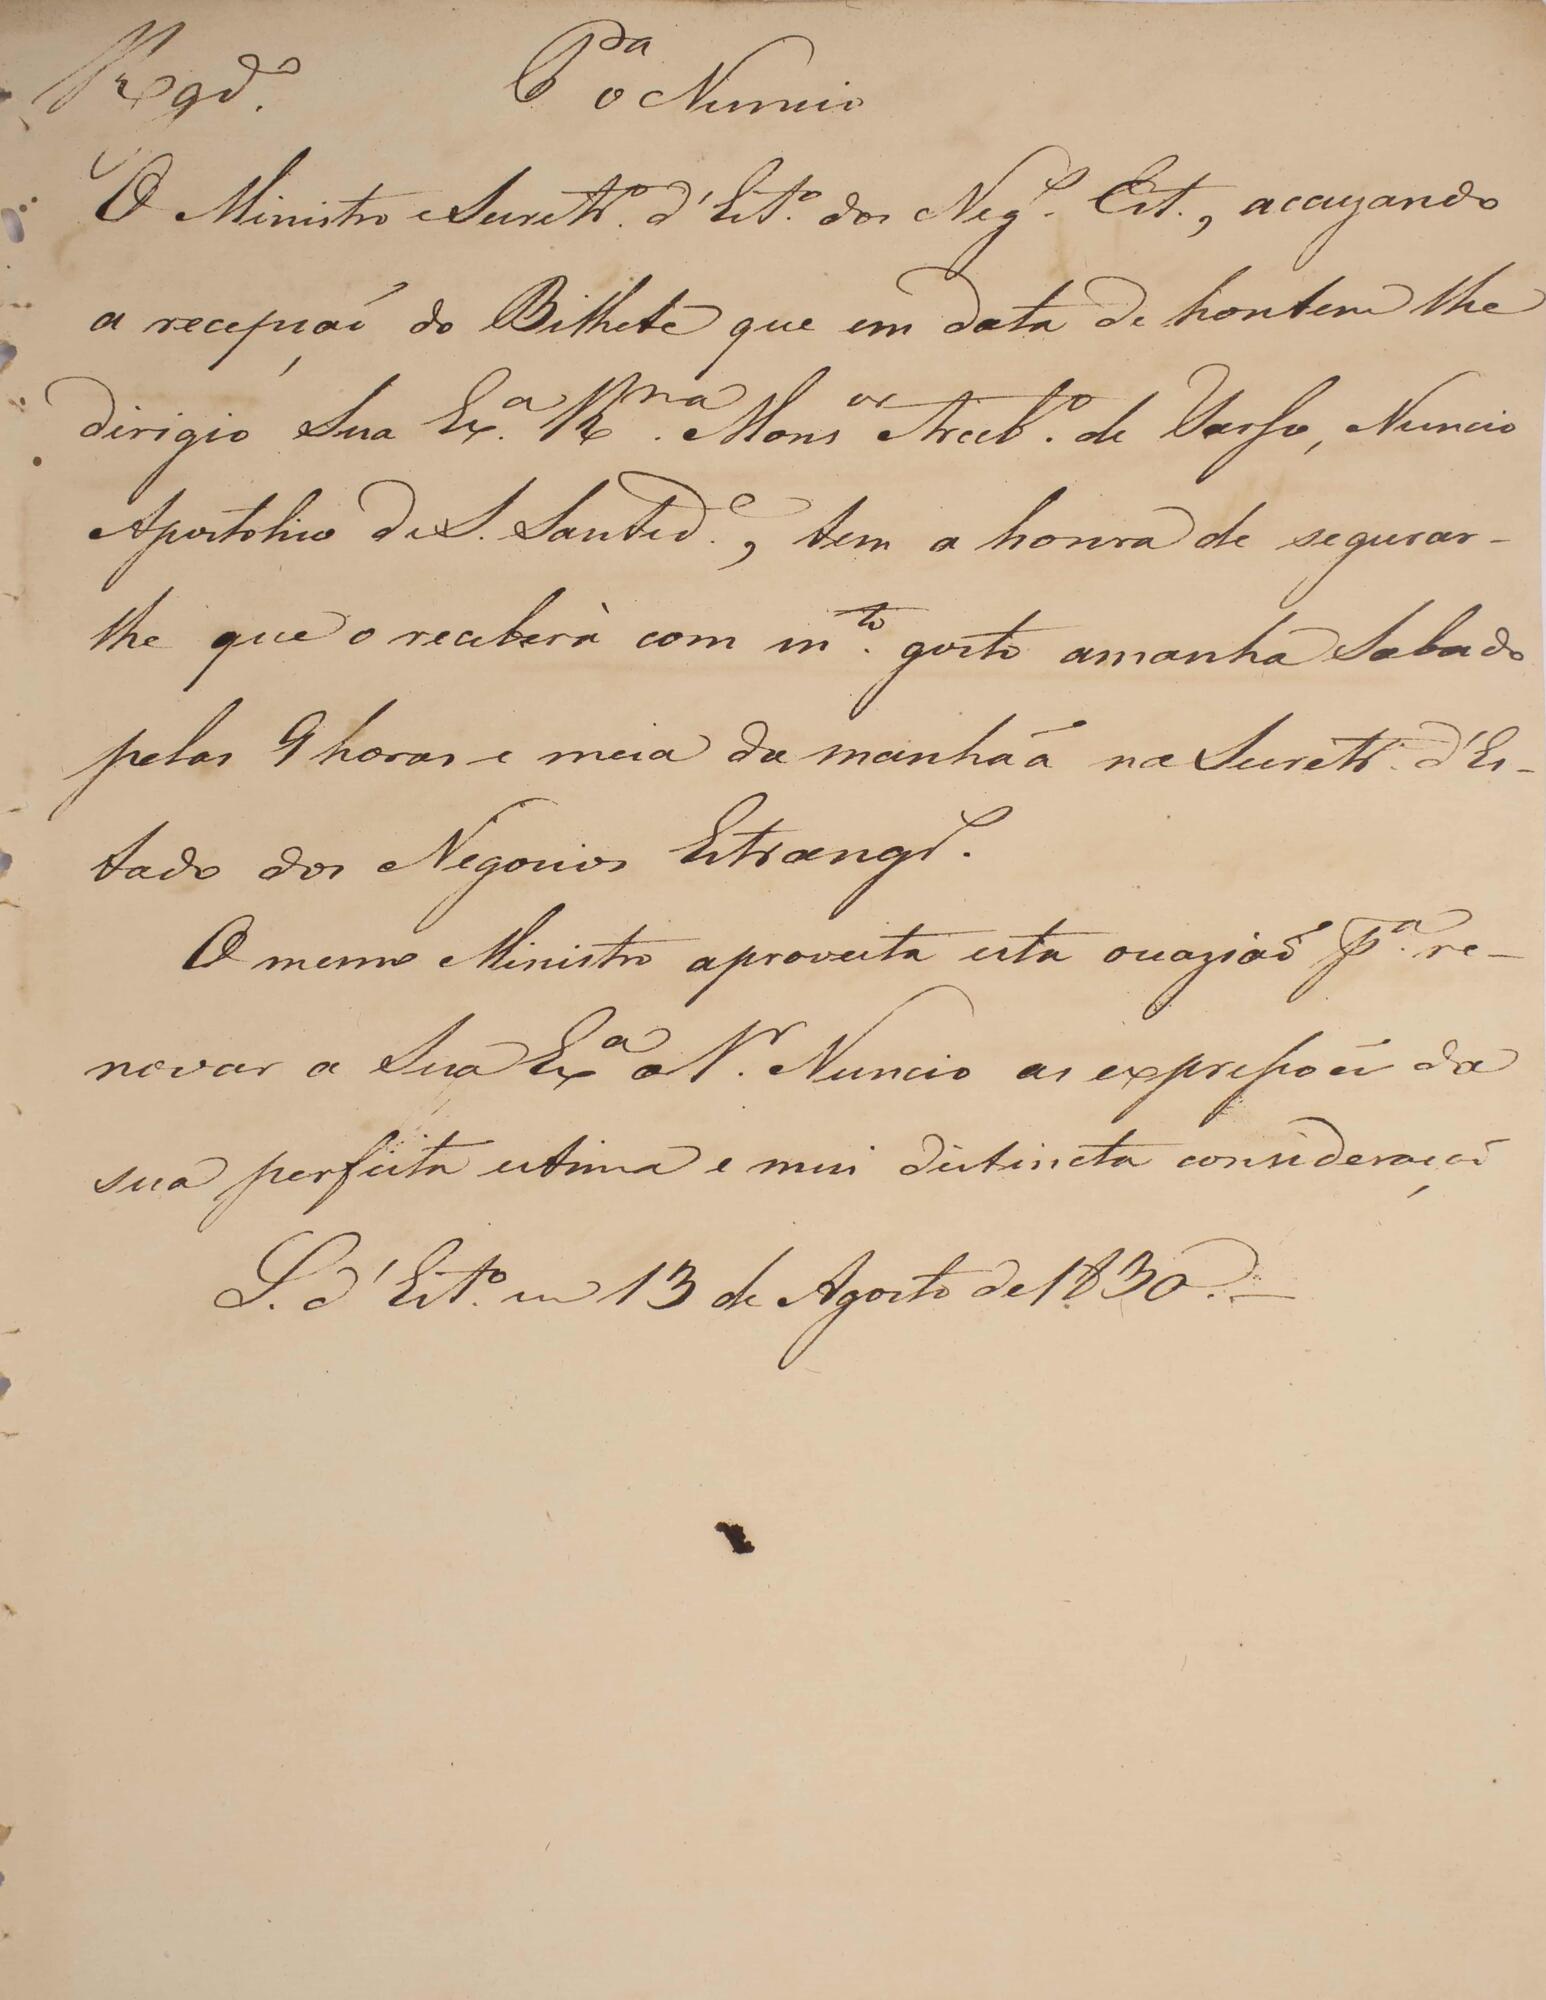 Regd.º P.da o Nuncio
O Ministro e Secretr.º d'Est.º dos Neg.s Est., accuzando
a recepçaõ do Bilhete que em data de hontem lhe
dirigio Sua Ex.ª R.ma Mons.or Arceb.º de Tarso, Nuncio
Apostolico de S. Santid.e, tem a honra de segurar-
lhe que o receberà com m.to gosto amanhã Sabado
pelas 9 horas e meia da manhãa na Secretr. d'Es-
tado dos Negocios Estrang.s.
O mesmo Ministro aproveita esta occaziaõ p.ª re-
novar a Sua Ex.ª o N.r Nuncio as expressoẽs da
sua perfeita estima e mui distincta consideraçaõ
S. d'Est.º em 13 de Agosto de 1830.—